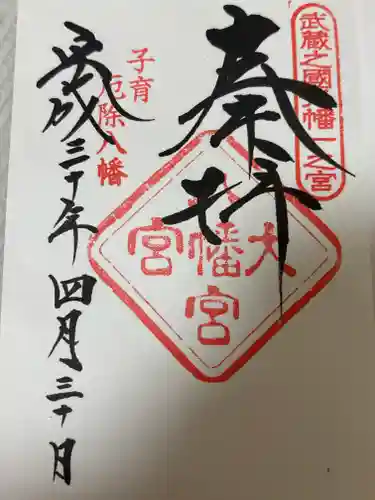 武蔵之國八幡一之宮
奉拝
大宮八幡宮
子育
厄除八幡
平成三十年四月三十日